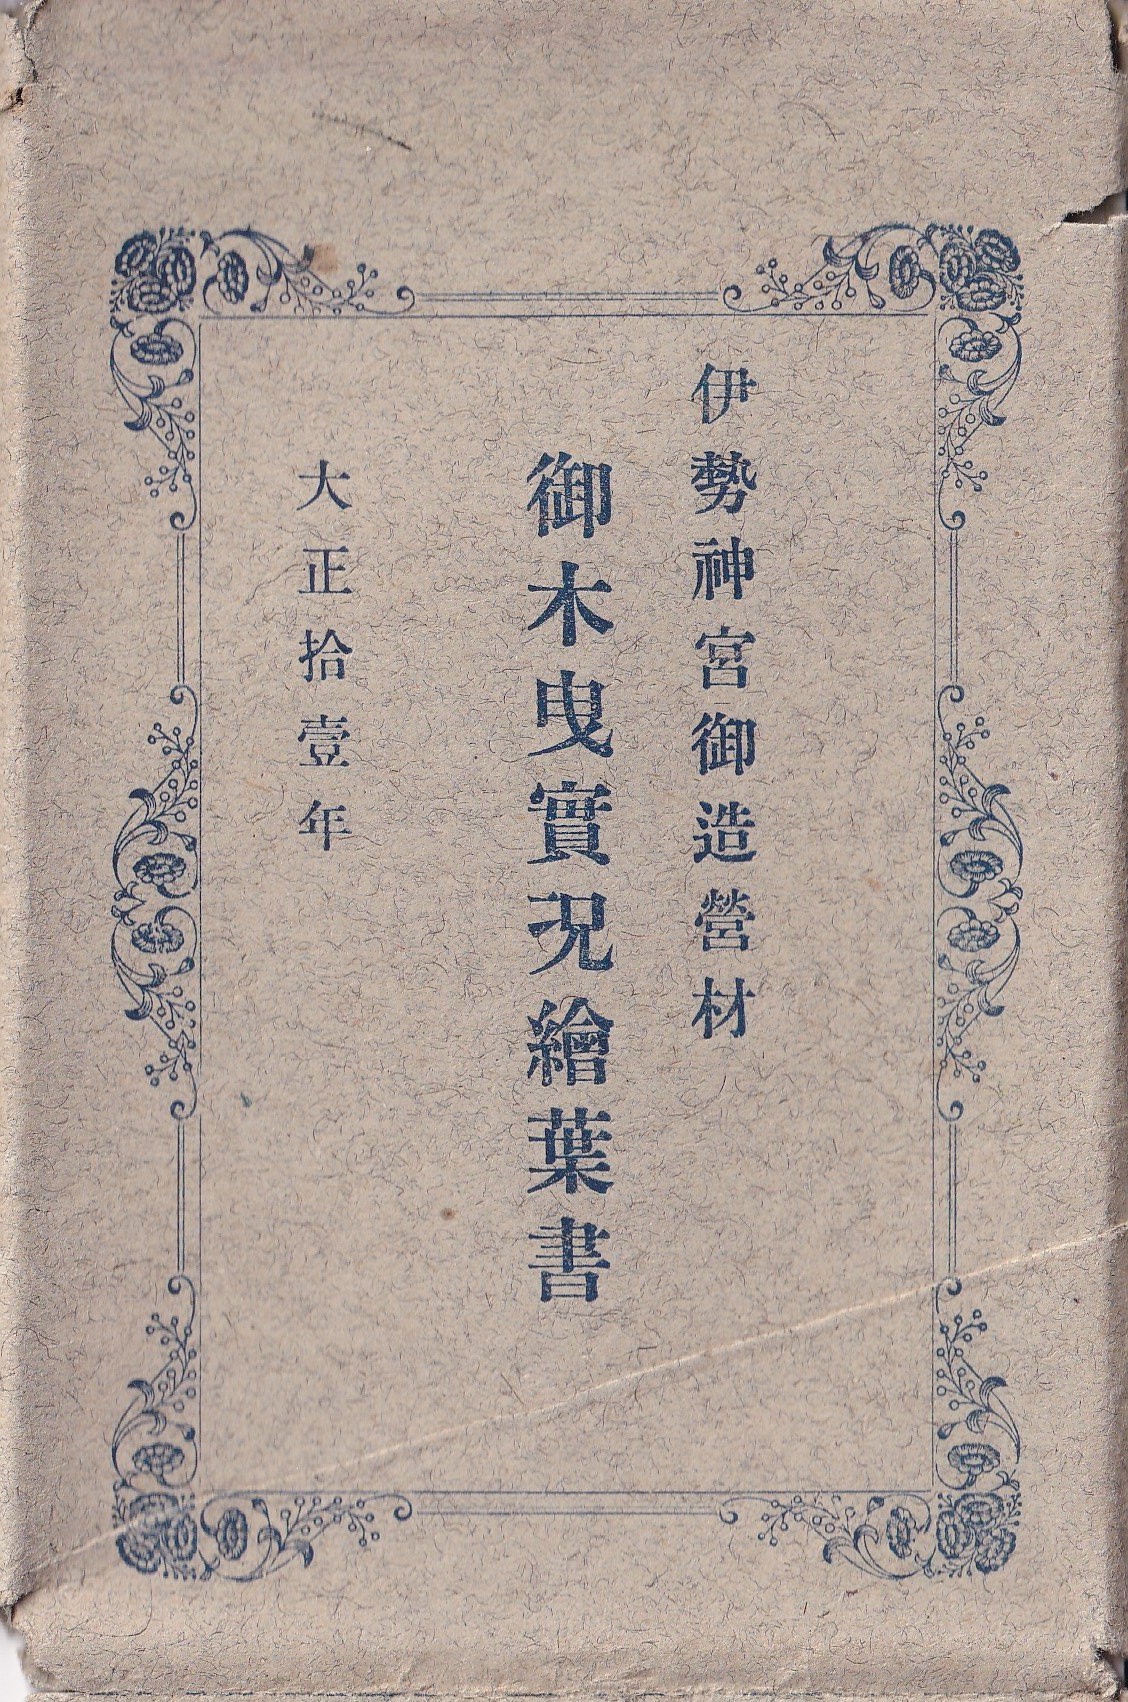 伊勢神宮御造營材
御木曳實況繪葉書
大正拾壹年